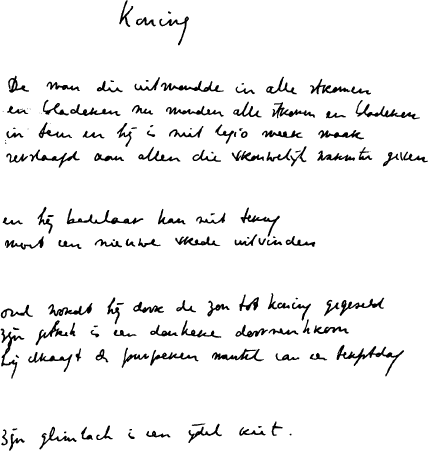 Koning
De man die uitmondde in alle stromen
en bladeren nu monden alle stromen en bladeren
in hem en hij is niet legio meer maar
verslaafd aan allen die vrouwelijk warmte geven
en hij bedelaar kan niet terug
moet een nieuwe vrede uitvinden
oud wordt hij door de zon tot koning gegeseld
zijn gebrek is een donkere doornenkroon
hij draagt de purperen mantel van een herfstdag
zijn glimlach is een ijdel